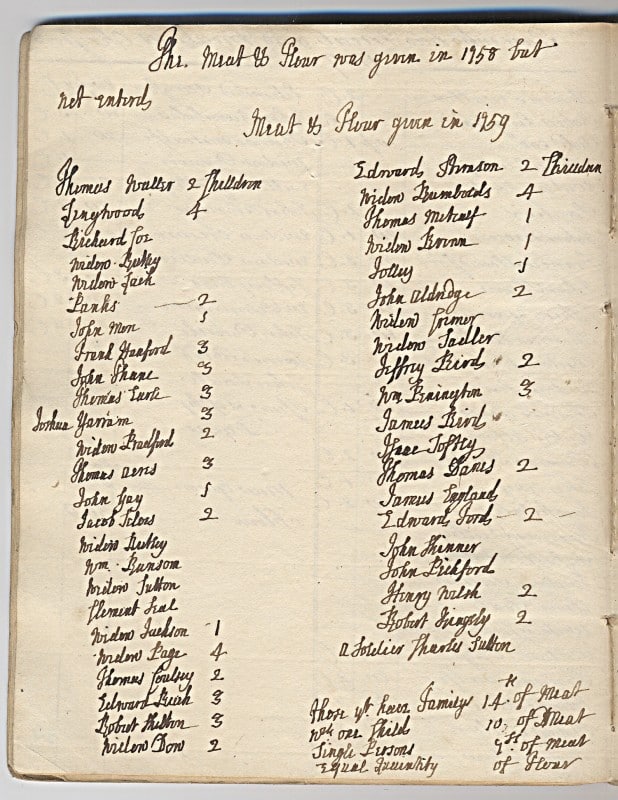 The Meat & Flour was given in 1758 but
not enterd
Meat & Flour given in 1759
Thomas Waller 2 Chilldren
Lingwoods 4
Richard Coe
Widow
Widow Jack
Panks 2
John Mon 1
Frank Hanford 3
John Thane 3
Thomas Earle 3
Joshua Yarram 3
Widow Bradford 2
Thomas Acres 3
John Gay 1
Jacob 2
Widow
Wm. Bunsom
Widow Sutton
Clement Seal
Widow Jackson 1
Widow Page 4
Thomas Coulsey 2
Edward 3
Robert 3
Widow Dow 2
Edward 2 Chilldren
Widow Rumbolds 4
Thomas Metcalf 1
Widow Brown 1
Jolley 1
John Aldridge 2
Widow
Widow Sadler
Jeffrey Bird 2
Wm Benington 3
James Bird
Isaac
Thomas 2
James England
Edward Ford 2
John Skinner
John Bickford
Henry Welsh 2
Robert 2
a Soldier Charles Sutton
those yt. have Familys 14th of Meat
wth one Child 10 of Meat
Single Persons of Meat
Equal Quantity of Flour